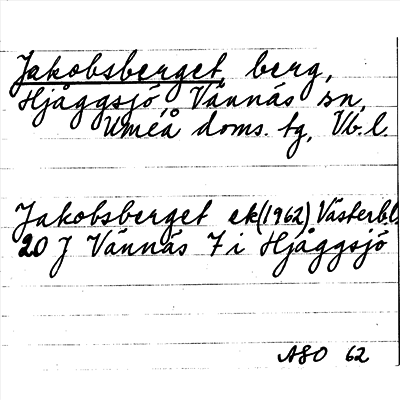 Jakobsberget, berg,
Hjåggsjö, Vännäs sn,
Umeå doms. tg, Vb. l.
Jakobsberget ek (1962) Västerb.l.
20 J Vännäs 7 i Hjåggsjö
ASO 62